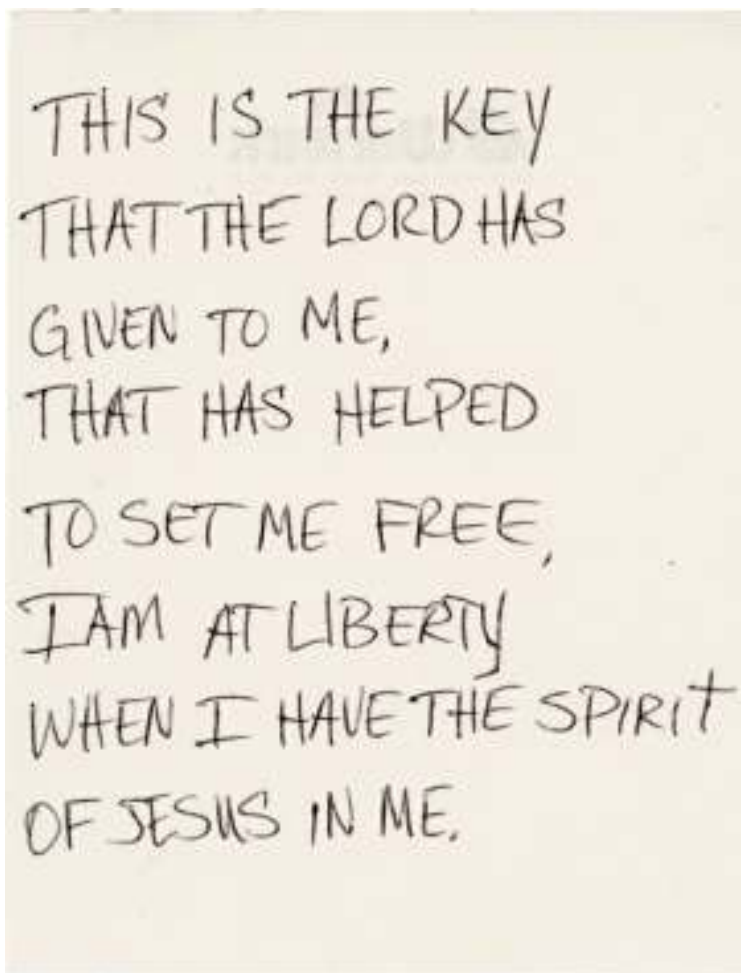 THIS IS THE KEY
THAT THE LORD HAS
GIVEN TO ME,
THAT HAS HELPED
TO SET ME FREE,
I AM AT LIBERTY
WHEN I HAVE THE SPIRIT
OF JESUS IN ME.